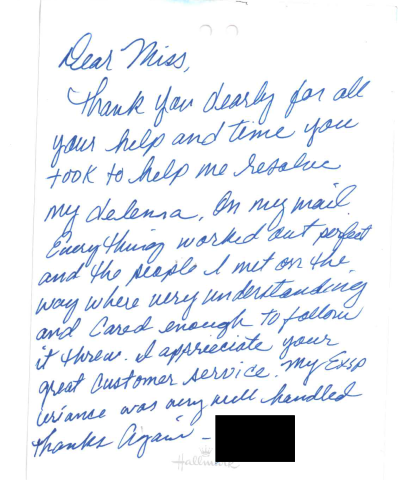 Dear Miss,
Thank you dearly for all
your help and time you
took to help me resolve
my delema. On my mail
Everything worked out perfect
and the people I met on the
way where very understanding
and Cared enough to follow
it threw. I apprieciate your
great Customer service. My Exsp
eriance was very well handled
thanks Again -
Hallmark